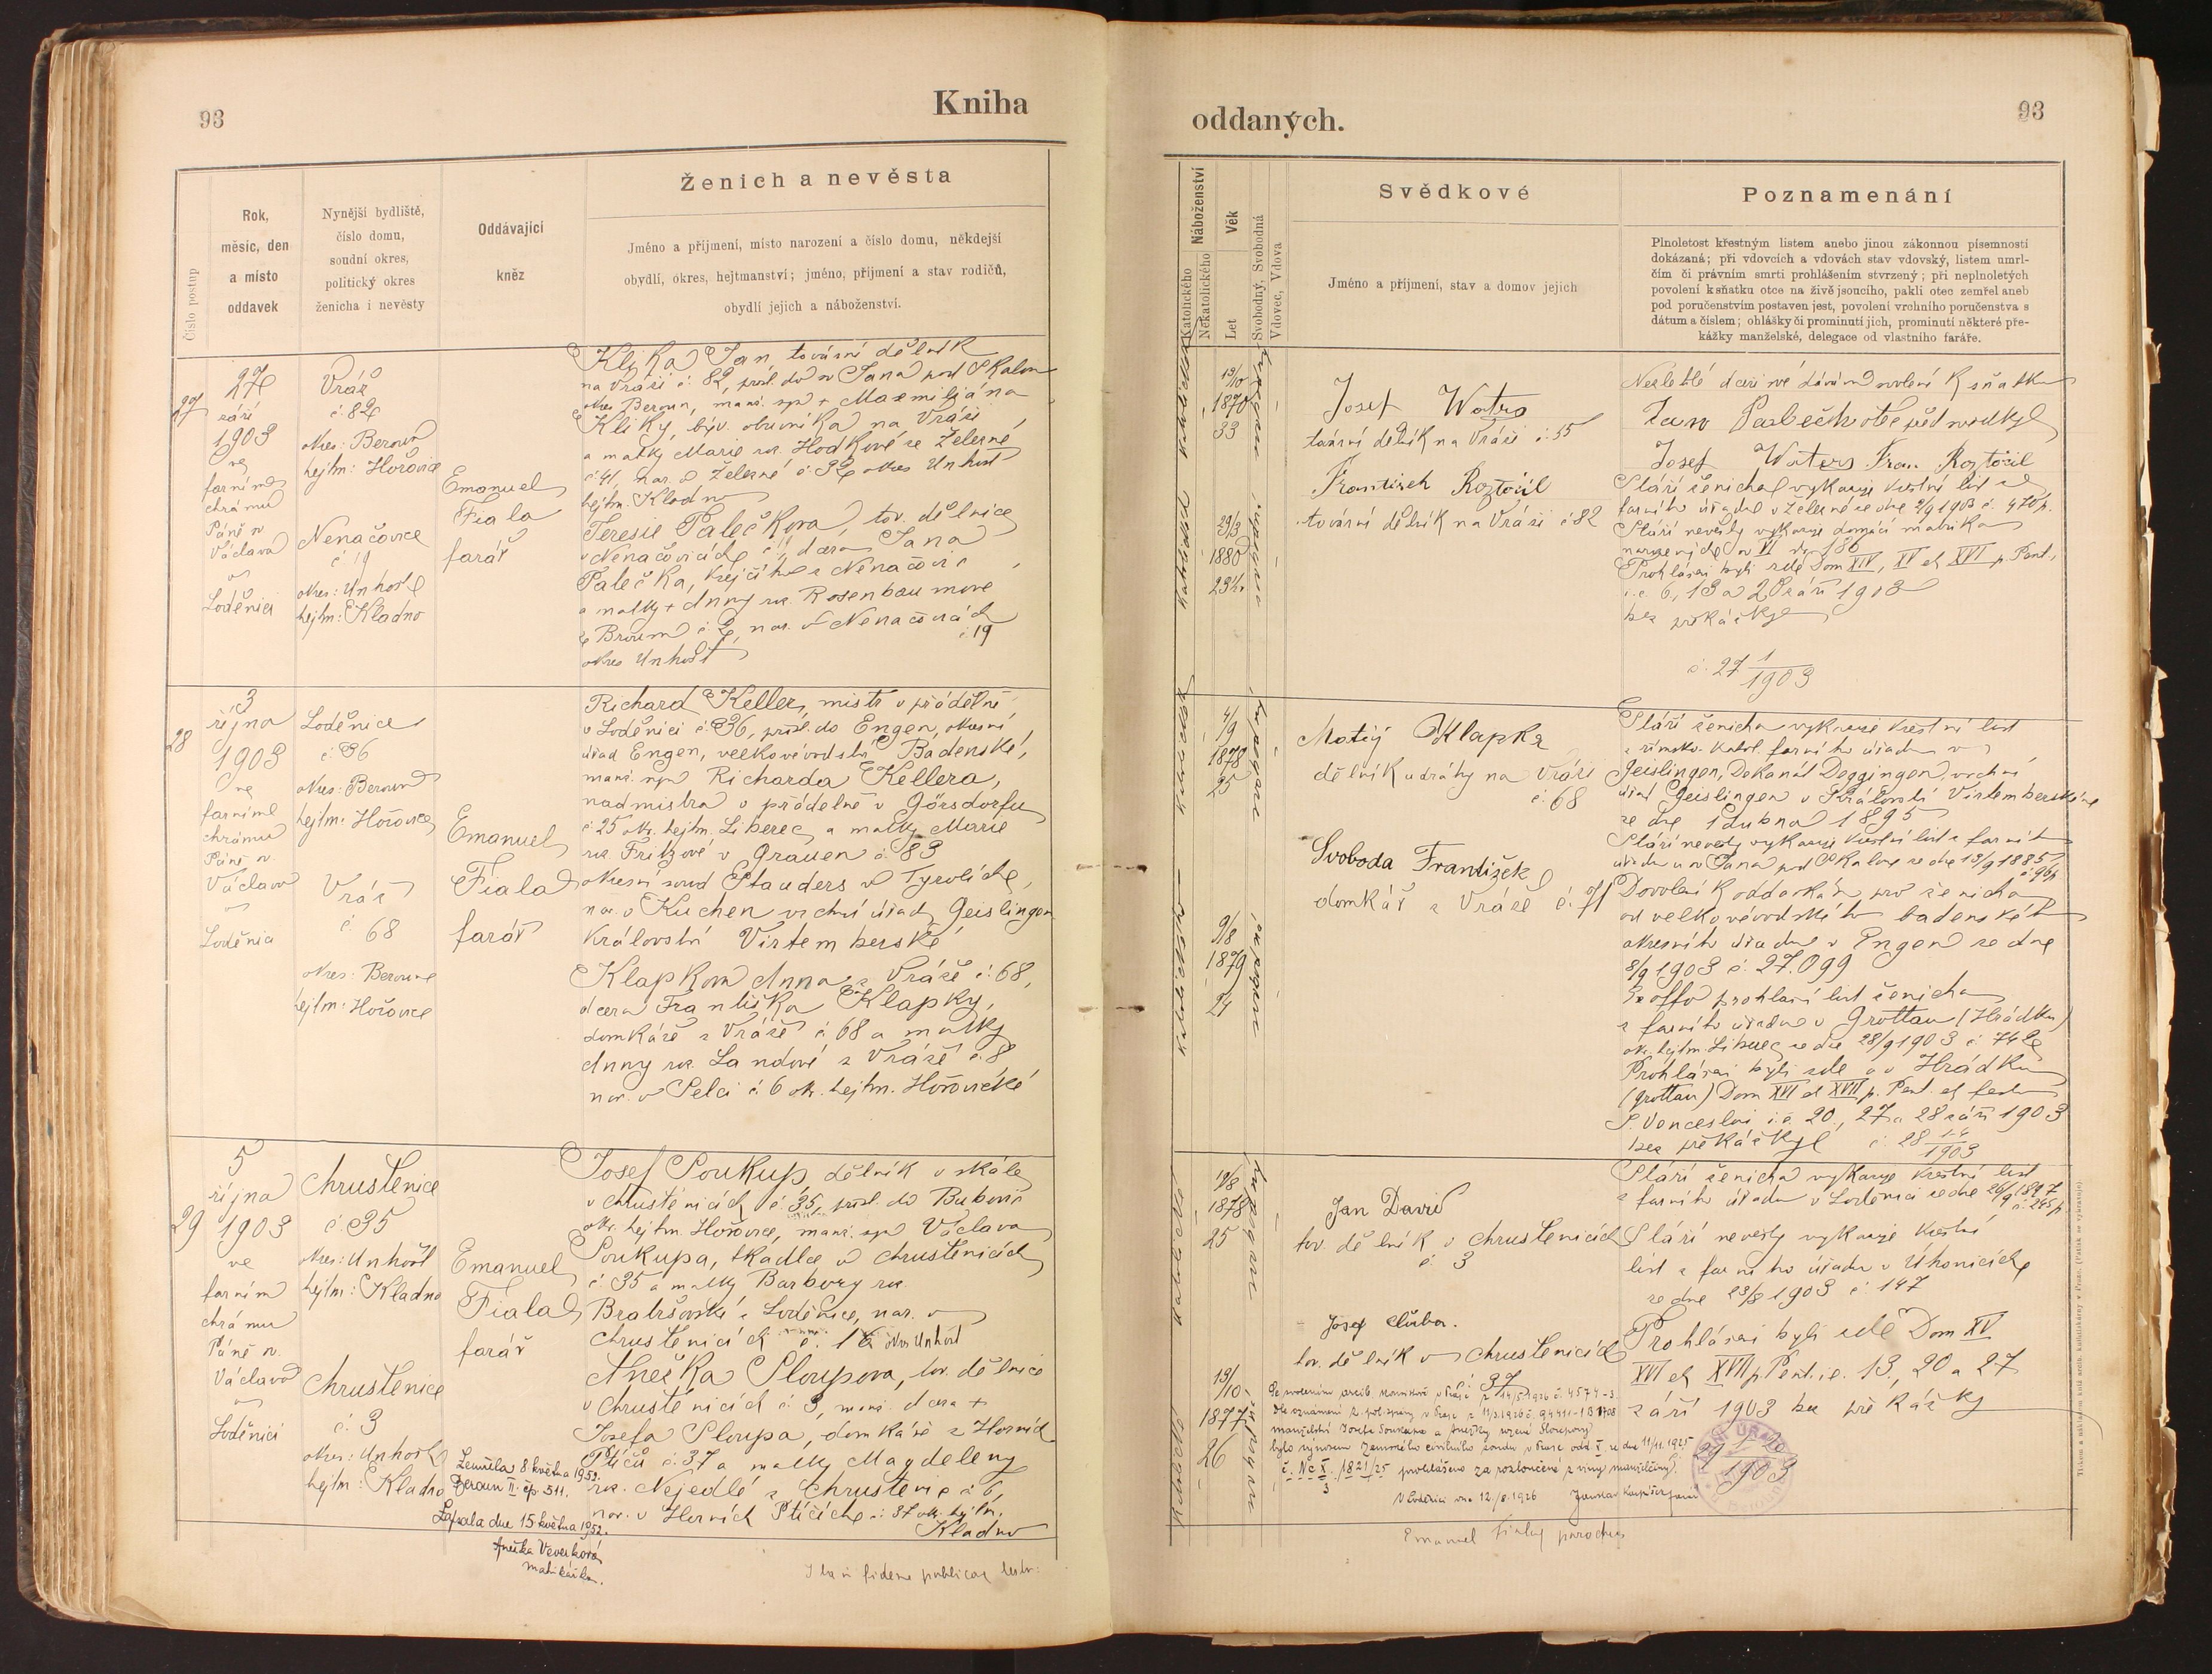 93
Kniha
Číslo postup
Rok,
měsíc, den
a místo
oddavek
Nynější bydliště,
číslo domu,
soudní okres,
politický okres
ženicha i nevěsty
Oddávající
kněz
Ženich a nevěsta
Jméno a příjmení, místo narození a číslo domu, někdejší
obydlí, okres, hejtmanství; jméno, příjmení a stav rodičů,
obydlí jejich a náboženství.
27
27
září
1903
ve
farním
chrámu
Páně sv.
Václava
v
Loděnici
Vráž
č 82
okres: Beroun
hejtm: Hořovice
Nenačovice
č 19
okres: Unhošť
hejtm: Kladno
Emanuel
Fiala
farář
Klika Jan, tovární dělník
na Vráži č. 82, přísl. do sv Jana pod Skalou
okres Beroun, manž. syn + Maxmiliána
Kliky, býv. obuvníka na Vráži
a matky Marie roz. Hodkové ze Železné
č 41, nar. v Železné č. 32 okres Unhošť
hejtm. Kladno
Terezie Palečkova, tov. dělnice
v Nenačovicích č , dcera Jana
Palečka, krejčího z Nenačovic
a matky + Anny roz. Rosenbaumove
z č 2, nar. v Nenačovicích
č. 19
okres Unhošť
28
3
října
1903
ve
farním
chrámu
Páně sv.
Václava
v
Loděnici
Loděnice
č. 36
okres: Beroun
hejtm: Hořovice
Vráž
č. 68
okres: Beroun
hejtm: Hořovice
Emanuel
Fiala
farář
Richard Keller, mistr v přádelně
v Loděnici č. 36, přísl. do Engen, okresní
úřad Engen, velkovévodství Badenské,
manž. syn Richarda Kellera,
nadmistra v přádelně v Görsdorfu
č 25 ok. hejtm. Liberec, a matky Marie
roz. Fritzové v Grauen č. 83
okresní soud Stauders v Tyrolích,
nar. v Kuchen vrchní úřad Geislingen
království Virtemberské
Klapkova Anna z Vráže č. 68,
dcera Františka Klapky,
domkáře z Vráže č 68 a matky
Anny roz. Landové z Vráže č. 8
nar. v Selci č. 6 ok. hejtm. Hořovické
29
5
října
1903
ve
farním
chrámu
Páně sv.
Václava
v
Loděnici
Chrustenice
č. 35
okres: Unhošť
hejtm: Kladno
Chrustenice
č. 3
okres: Unhošť
hejtm: Kladno
Emanuel
Fiala
farář
Josef Soukup, dělník v skále
v Chrustenicích č. 35, přísl. do Bubovic
ok. hejtm. Hořovice, manž. syn Václava
Soukupa, tkadlce v Chrustenicích
č 35 a matky Barbory roz.
z Loděnice, nar. v
Chrustenicích č. okr. Unhošť
Anežka Sloupova, tov. dělnice
v Chrustenicích č. 3, manž. dcera +
Josefa Sloupa, domkáře z Horních
Ptíčů č. 37 a matky Magdaleny
roz. Nejedlé z Chrustenic č 6,
nar. v Horních Ptíčích č. 37 ok. hejtm.
Kladno
Zemřela 8. května 1952.
Beroun II. čp. 511.
Zapsala dne 15. května 1952.
Anežka Veverková
matrikářka.
fidem publicam
oddaných.
93
Náboženství
Katolického
Nekatolického
Věk
Let
Svobodný, Svobodná
Vdovec, Vdova
Svědkové
Jméno a příjmení, stav a domov jejich
Poznamenání
Plnoletost křestným listem anebo jinou zákonnou písemností
dokázaná; při vdovcích a vdovách stav vdovský, listem umrl-
čím či právním smrti prohlášením stvrzený; při neplnoletých
povolení k sňatku otce na živě jsoucího, pakli otec zemřel aneb
pod poručenstvím postaven jest, povolení vrchního poručenstva s
dátum a číslem; ohlášky či prominutí jich, prominutí některé pře-
kážky manželské, delegace od vlastního faráře.
katolické
19/10
1870
33
katolické
29/3
1880
23½
Josef Watrs
tovární dělník na Vráži č. 55
František Roztočil
tovární dělník na Vráži č 82
Nezletilé dceři své dávám svolení k sňatku
Jan Paleček otec před svědky
Josef Waters Fran. Roztočil
Stáří ženicha vykazuje křestní list ze
farního úřadu v Železné ze dne 2/9 1903 č. 470 p.
Stáří nevěsty vykazuje domácí matrika
narozených sv VI str 186
Prohlášeni byli zde Dom XIV, XV et XVI p. Pent.,
i. e 6, 13 a 20 září 1903
bez překážky
č. 27 1/1903
katolické
4/9
1878
25
svobodný
9/8
1879
24
Matěj Klapka
dělník u dráhy na Vráži
č. 68
Svoboda František
domkář z Vráže č. 71
Stáří ženicha vykazuje křestní list
z římsko-katol. farního úřadu v
Geislingen, Dekanát Deggingen, vrchní
úřad Geislingen v Království Virtemberském
ze dne 1 dubna 1895
Stáří nevěsty vykazuje křestní list z farního
úřadu u sv Jana pod Skalou ze dne 19/9 1885
č 96 p
Dovolení k oddavkám pro ženicha
od velkovévodského badenského
okresního úřadu v Engen ze dne
8/9 1903 č. 27.099
Ex offo prohlašní list ženicha
z farního úřadu v Grottau (Hrádku)
ok. hejtm. Liberec ze dne 28/9 1903 č. 742
Prohlášeni byli zde a v Hrádku
(Grottau) Dom XVI et XVII p. Pent. et festo
S. Venceslai i. e. 20., 27 a 28 září 1903
bez překážky č. 28 1-4/1903
katolické
19/8
1878
25
katolické
13/10
1877
26
Jan David
tov. dělník v Chrustenicích
č. 3
Josef
tov. dělník v Chrustenicích
37
Stáří ženicha vykazuje křestní list
z farního úřadu v Loděnici ze dne 26/9 1897
č. 245 p
Stáří nevěsty vykazuje křestní
list z farního úřadu v Úhonicích
ze dne 23/8 1903 č. 147
Prohlášeni byli zde Dom XV
XVI et XVII p. Pent. i. e. 13, 20 a 27
září 1903 bez překážky
29 1/1903
v Praze z 14/5 1926 č. 4574-3.
Dle oznámení z. pol. správy v Praze z 11/3 1926 č.
manželství Josefa Soukupa a Anežky rozené Sloupovy
bylo výnosem Zemského civilního soudu v Praze odd. X. ze dne 11/11. 1925
č. Nc X. 1821/25 prohlášeno za rozloučené z viny manželčiny.
3
V Loděnici dne 12./8. 1926 Jaroslav farář
Emanuel Fiala parochus